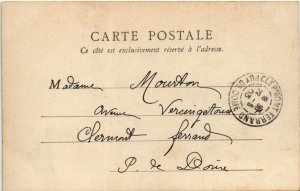 CARTE POSTALE
Ce côté est exclusivement réservé à l'adresse.
Madame Mourton
Avenue Vercingétorix
Clermont Ferrand
P. de Dôme
CLERMONT-FERRAND
PUY-DE-DOME